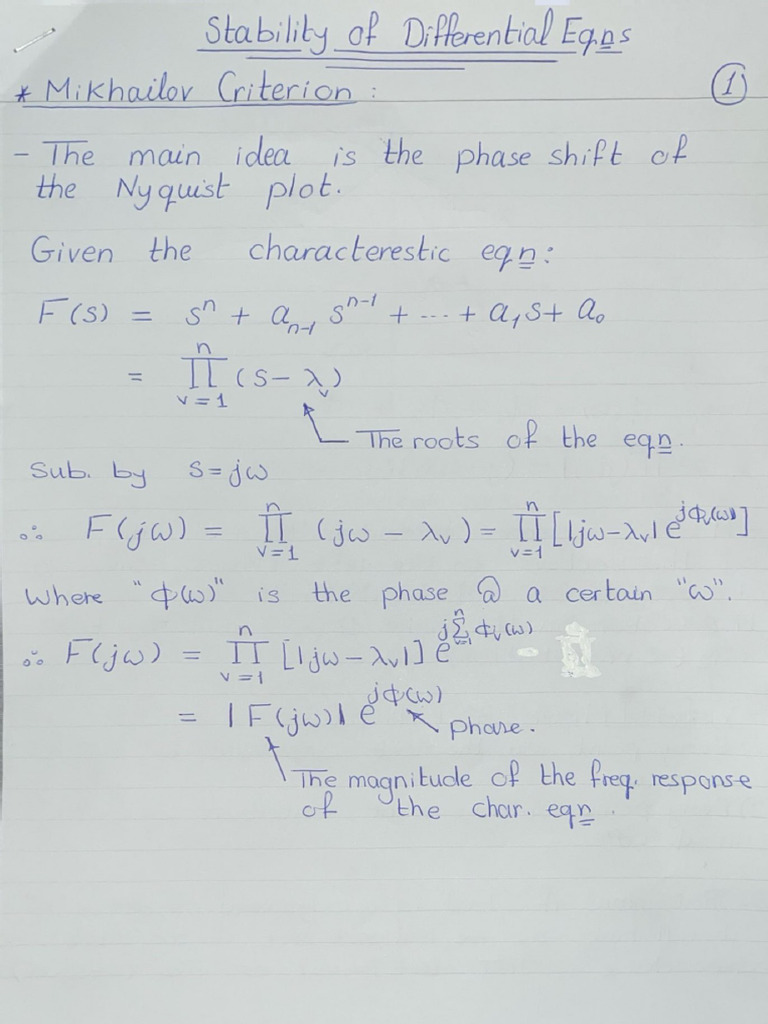 Stability of Differential Eqns
* Mikhailov Criterion :
①
- The main idea is the phase shift of
the Nyquist plot.
Given the characterestic eqn:
F(s) = sⁿ + aₙ₋₁ sⁿ⁻¹ + --- + a₁s + a₀
= ∏ᵥ₌₁ⁿ (s - λᵥ)
The roots of the eqn.
Sub. by s=jω
∴ F(jω) = ∏ᵥ₌₁ⁿ (jω - λᵥ) = ∏ᵥ₌₁ⁿ [|jω-λᵥ| e^{jϕᵥ(ω)}]
Where "ϕ(ω)" is the phase @ a certain "ω".
∴ F(jω) = ∏ᵥ₌₁ⁿ [|jω-λᵥ|] e^{j∑ᵥ₌₁ⁿ ϕᵥ(ω)}
= |F(jω)| e^{jϕ(ω)}
phase.
The magnitude of the freq. response
of the char. eqn.